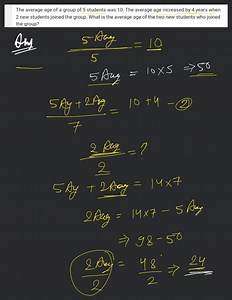 The average age of a group of 5 students was 10. The average age increased by 4 years when
2 new students joined the group. What is the average age of the two new students who joined
the group?
Ans
5 Avg / 5 = 10
5 Avg = 10×5 ⇒ 50
5 Ag + 2 Avg / 7 = 10 + 4 - ②
2 Avg / 2 = ?
5 Ag + 2 Avg = 14×7
2 Avg = 14×7 - 5 Avg
⇒ 98 - 50
2 Avg / 2 = 48 / 2 ⇒ 24